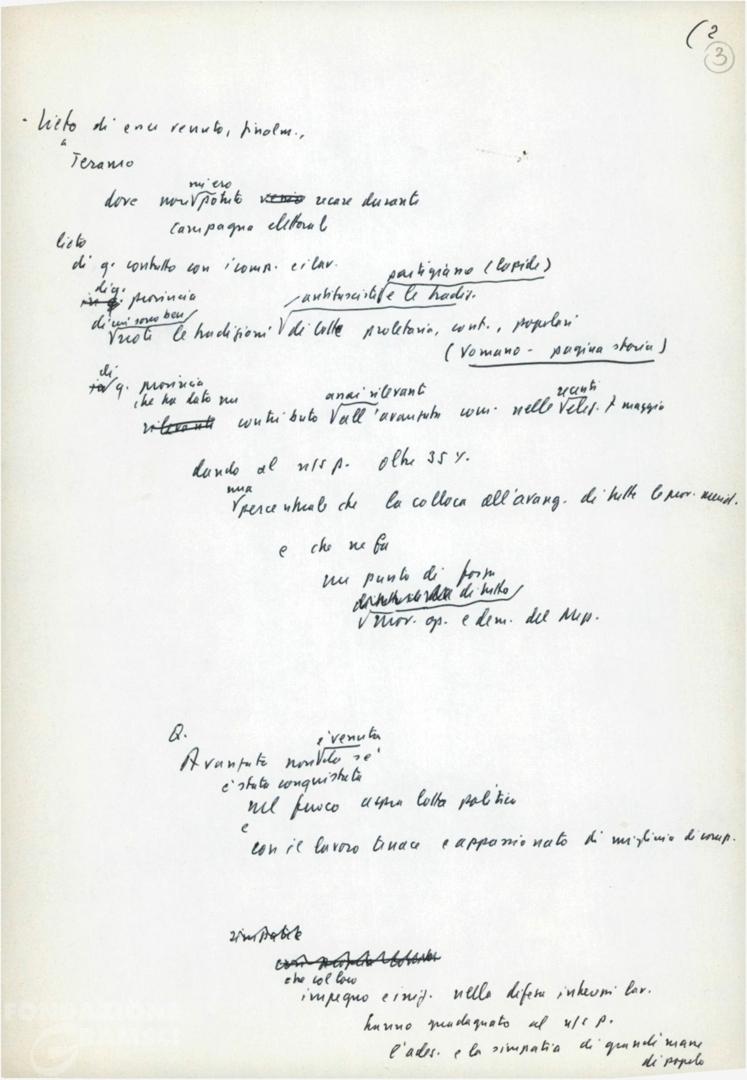 (2
3
- Lieto di esser venuto, finalm.,
a
Teramo
mi ero
dove non potuto recare durante
campagna elettoral
lieto
di q. contatto con i comp. e i lav.
partigiano (lapide)
di q. provincia
antifasciste e le tradiz.
di cui sono ben
note le tradizioni di lotte proletarie, cont., popolari
(Vomano - pagina storia)
di
q. provincia
che ha dato un
assai rilevanti recenti
contributo all'avanzata com. nelle elez. 7 maggio
dando al n/s p. oltre 35 %.
una
percentuale che la colloca all'avang. di tutte le prov. merid.
e che ne fa
un punto di forza
di tutto
mov. op. e dem. del Mezz.
Q.
è venuta
Avanzata non da sé
è stata conquistata
nel fuoco aspra lotta politica
e
con il lavoro tenace e appassionato di migliaia di comp.
simpatie
che col loro
impegno e iniz. nella difesa interessi lav.
hanno guadagnato al n/s p.
l'ades. e la simpatia di grandi masse
di popolo
FONDAZIONE
GRAMSCI